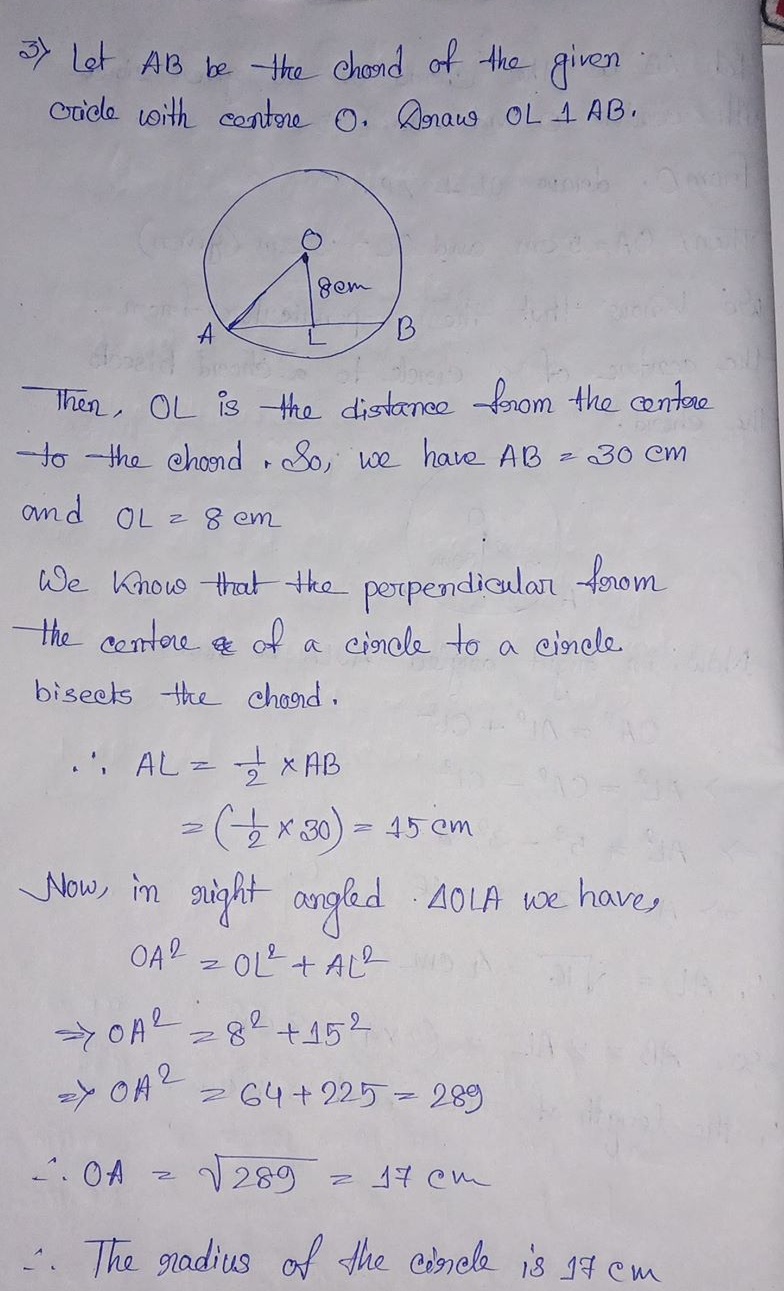 3) Let AB be the chord of the given
circle with centre O. Draw OL ⊥ AB.
O
8cm
A L B
Then, OL is the distance from the centre
to the chord. So, we have AB = 30 cm
and OL = 8 cm
We know that the perpendicular from
the centre of a circle to a circle
bisects the chord.
∴ AL = 1/2 × AB
= (1/2 × 30) = 15 cm
Now, in right angled ΔOLA we have,
OA² = OL² + AL²
⇒ OA² = 8² + 15²
⇒ OA² = 64 + 225 = 289
∴ OA = √289 = 17 cm
∴ The radius of the circle is 17 cm